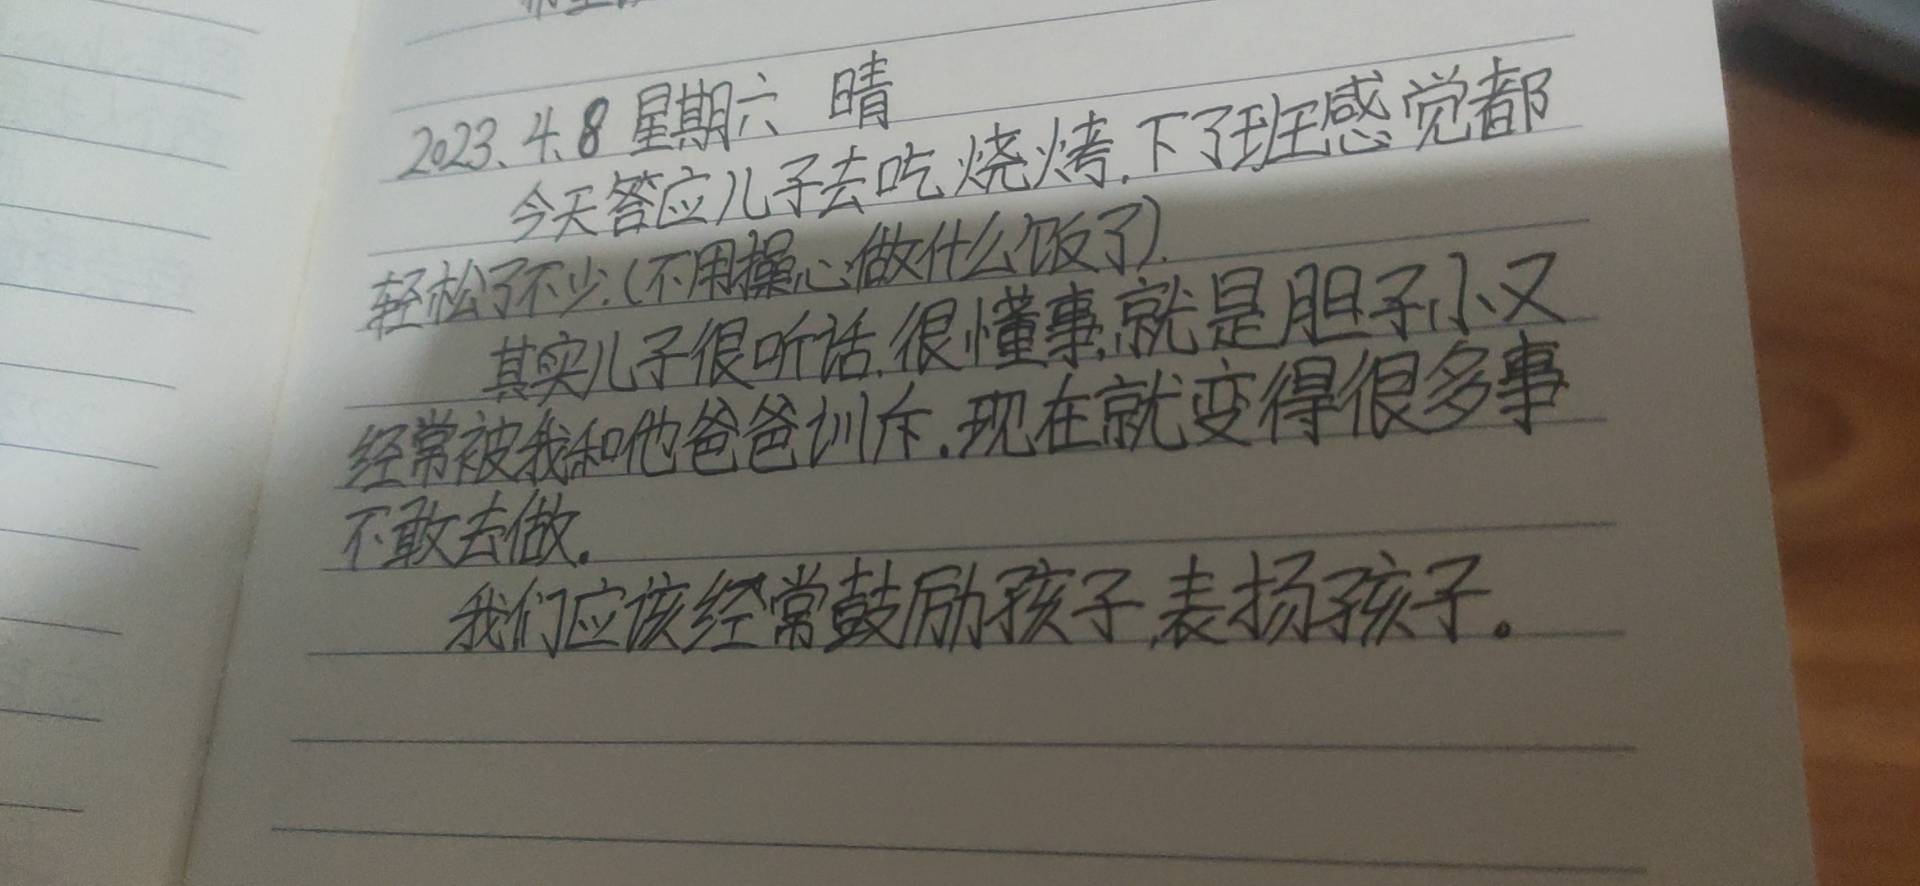 2023.4.8 星期六 晴
今天答应儿子去吃烧烤.下了班感觉都
轻松了不少.(不用操心做什么饭了).
其实儿子很听话.很懂事,就是胆子小又
经常被我和他爸爸训斥.现在就变得很多事
不敢去做.
我们应该经常鼓励孩子,表扬孩子。